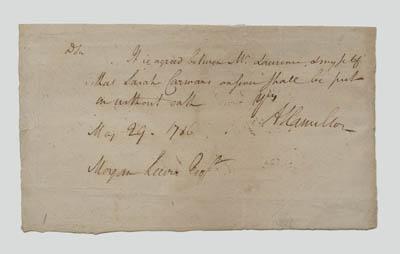 It is agreed between Mr. Laurence & myself
that Sarah shall be put
in without oath
A Hamilton
May 29. 1786
Morgan Lewis Esqr.